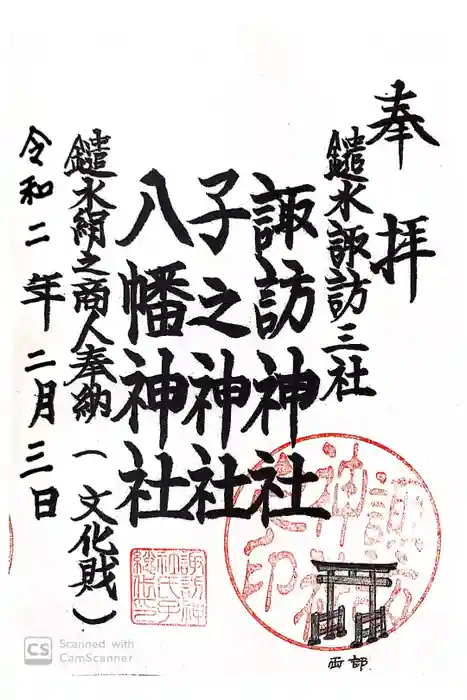 奉拝
鑓水諏訪三社
諏訪神社
子之神社
八幡神社
鑓水絹之商人奉納(文化財)
令和二年二月三日
諏訪神社之印
諏訪神社氏子総代印
西部
CS Scanned with
CamScanner